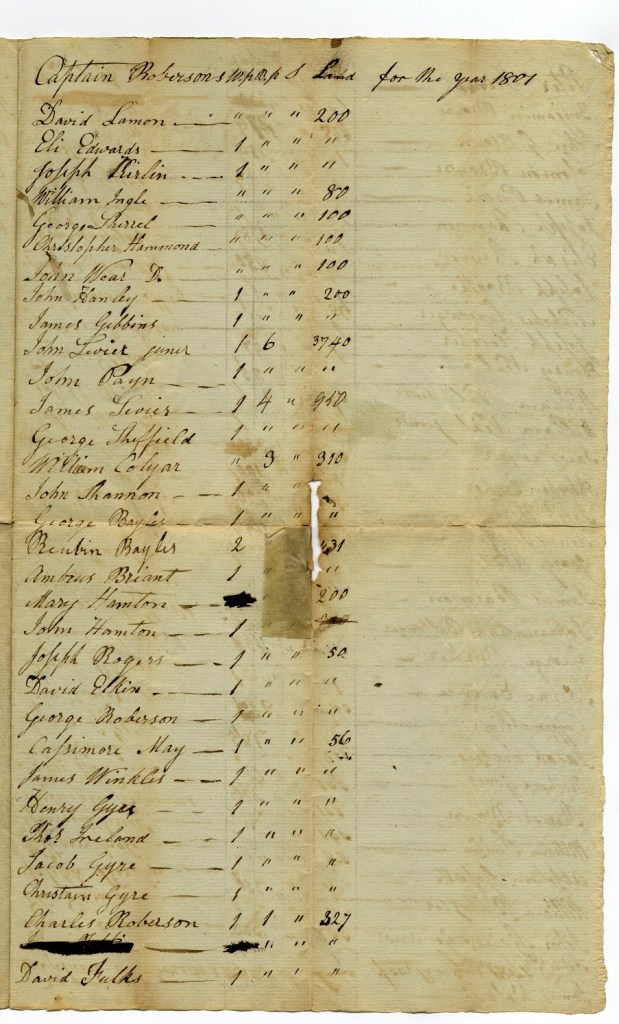 Captain Robersons W.p B.p S Land for the year 1801
David Lamon " " " 200
Eli Edwards 1 " " "
Joseph Kirlin 1 " " "
William Ingle " " " 80
George Sherrel " " " 100
Christopher Hammond " " " 100
John Wear D. " " " 100
John Hanley 1 " " 200
James Gibbins 1 " " "
John Sevier juner 1 6 3740
John Payn 1 " " "
James Sevier 1 4 " 950
George Sheffield 1 " " "
William Colyar " 3 " 310
John Shannon 1 " "
George Bayles 1 " " "
Reubin Bayles 2 " 31
Ambrus Briant 1 "
Mary Hamton 200
John Hamton 1
Joseph Rogers 1 " " 50
David Elkin 1 " " "
George Roberson 1 " " "
Cassimore May 1 " " 56
James Winkles 1 " " "
Henry Gyre 1 " " "
Thos Ireland 1 " " "
Jacob Gyre 1 " " "
Christain Gyre 1 " " "
Charles Roberson 1 1 " 327
" " "
David Fulks 1 " " "